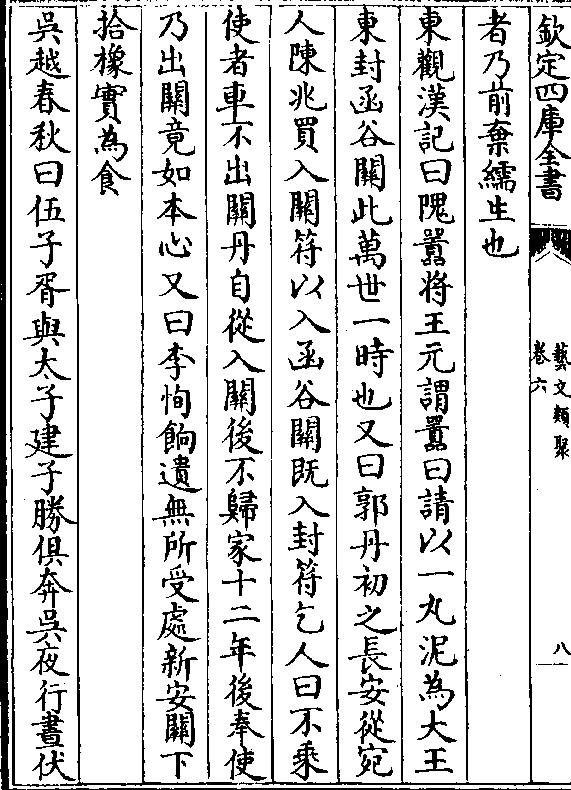 欽定四庫全書
藝文類聚
卷六
八
者乃前棄繻生也
東觀漢記曰隗囂將王元謂囂曰請以一丸泥為大王
東封函谷關此萬世一時也又曰郭丹初之長安從宛
人陳兆買入關符以入函谷關既入封符乞人曰不乘
使者車不出關丹自從入關後不歸家十二年後奉使
乃出關竟如本心又曰李恂餉遺無所受處新安關下
拾橡實為食
吳越春秋曰伍子胥與太子建子勝俱奔吳夜行晝伏